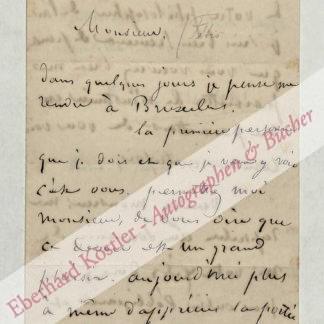 Monsieur,
Fétis
dans quelques jours je pense me
rendre à Bruxelles.
la première personne
que je dois et que je veux y voir
c'est vous. permettez moi
monsieur, de vous dire que
ce devoir est un grand
plaisir. aujourd'hui plus
à même d'apprécier la portée
Eberhard Köstler - Autographen & Bücher